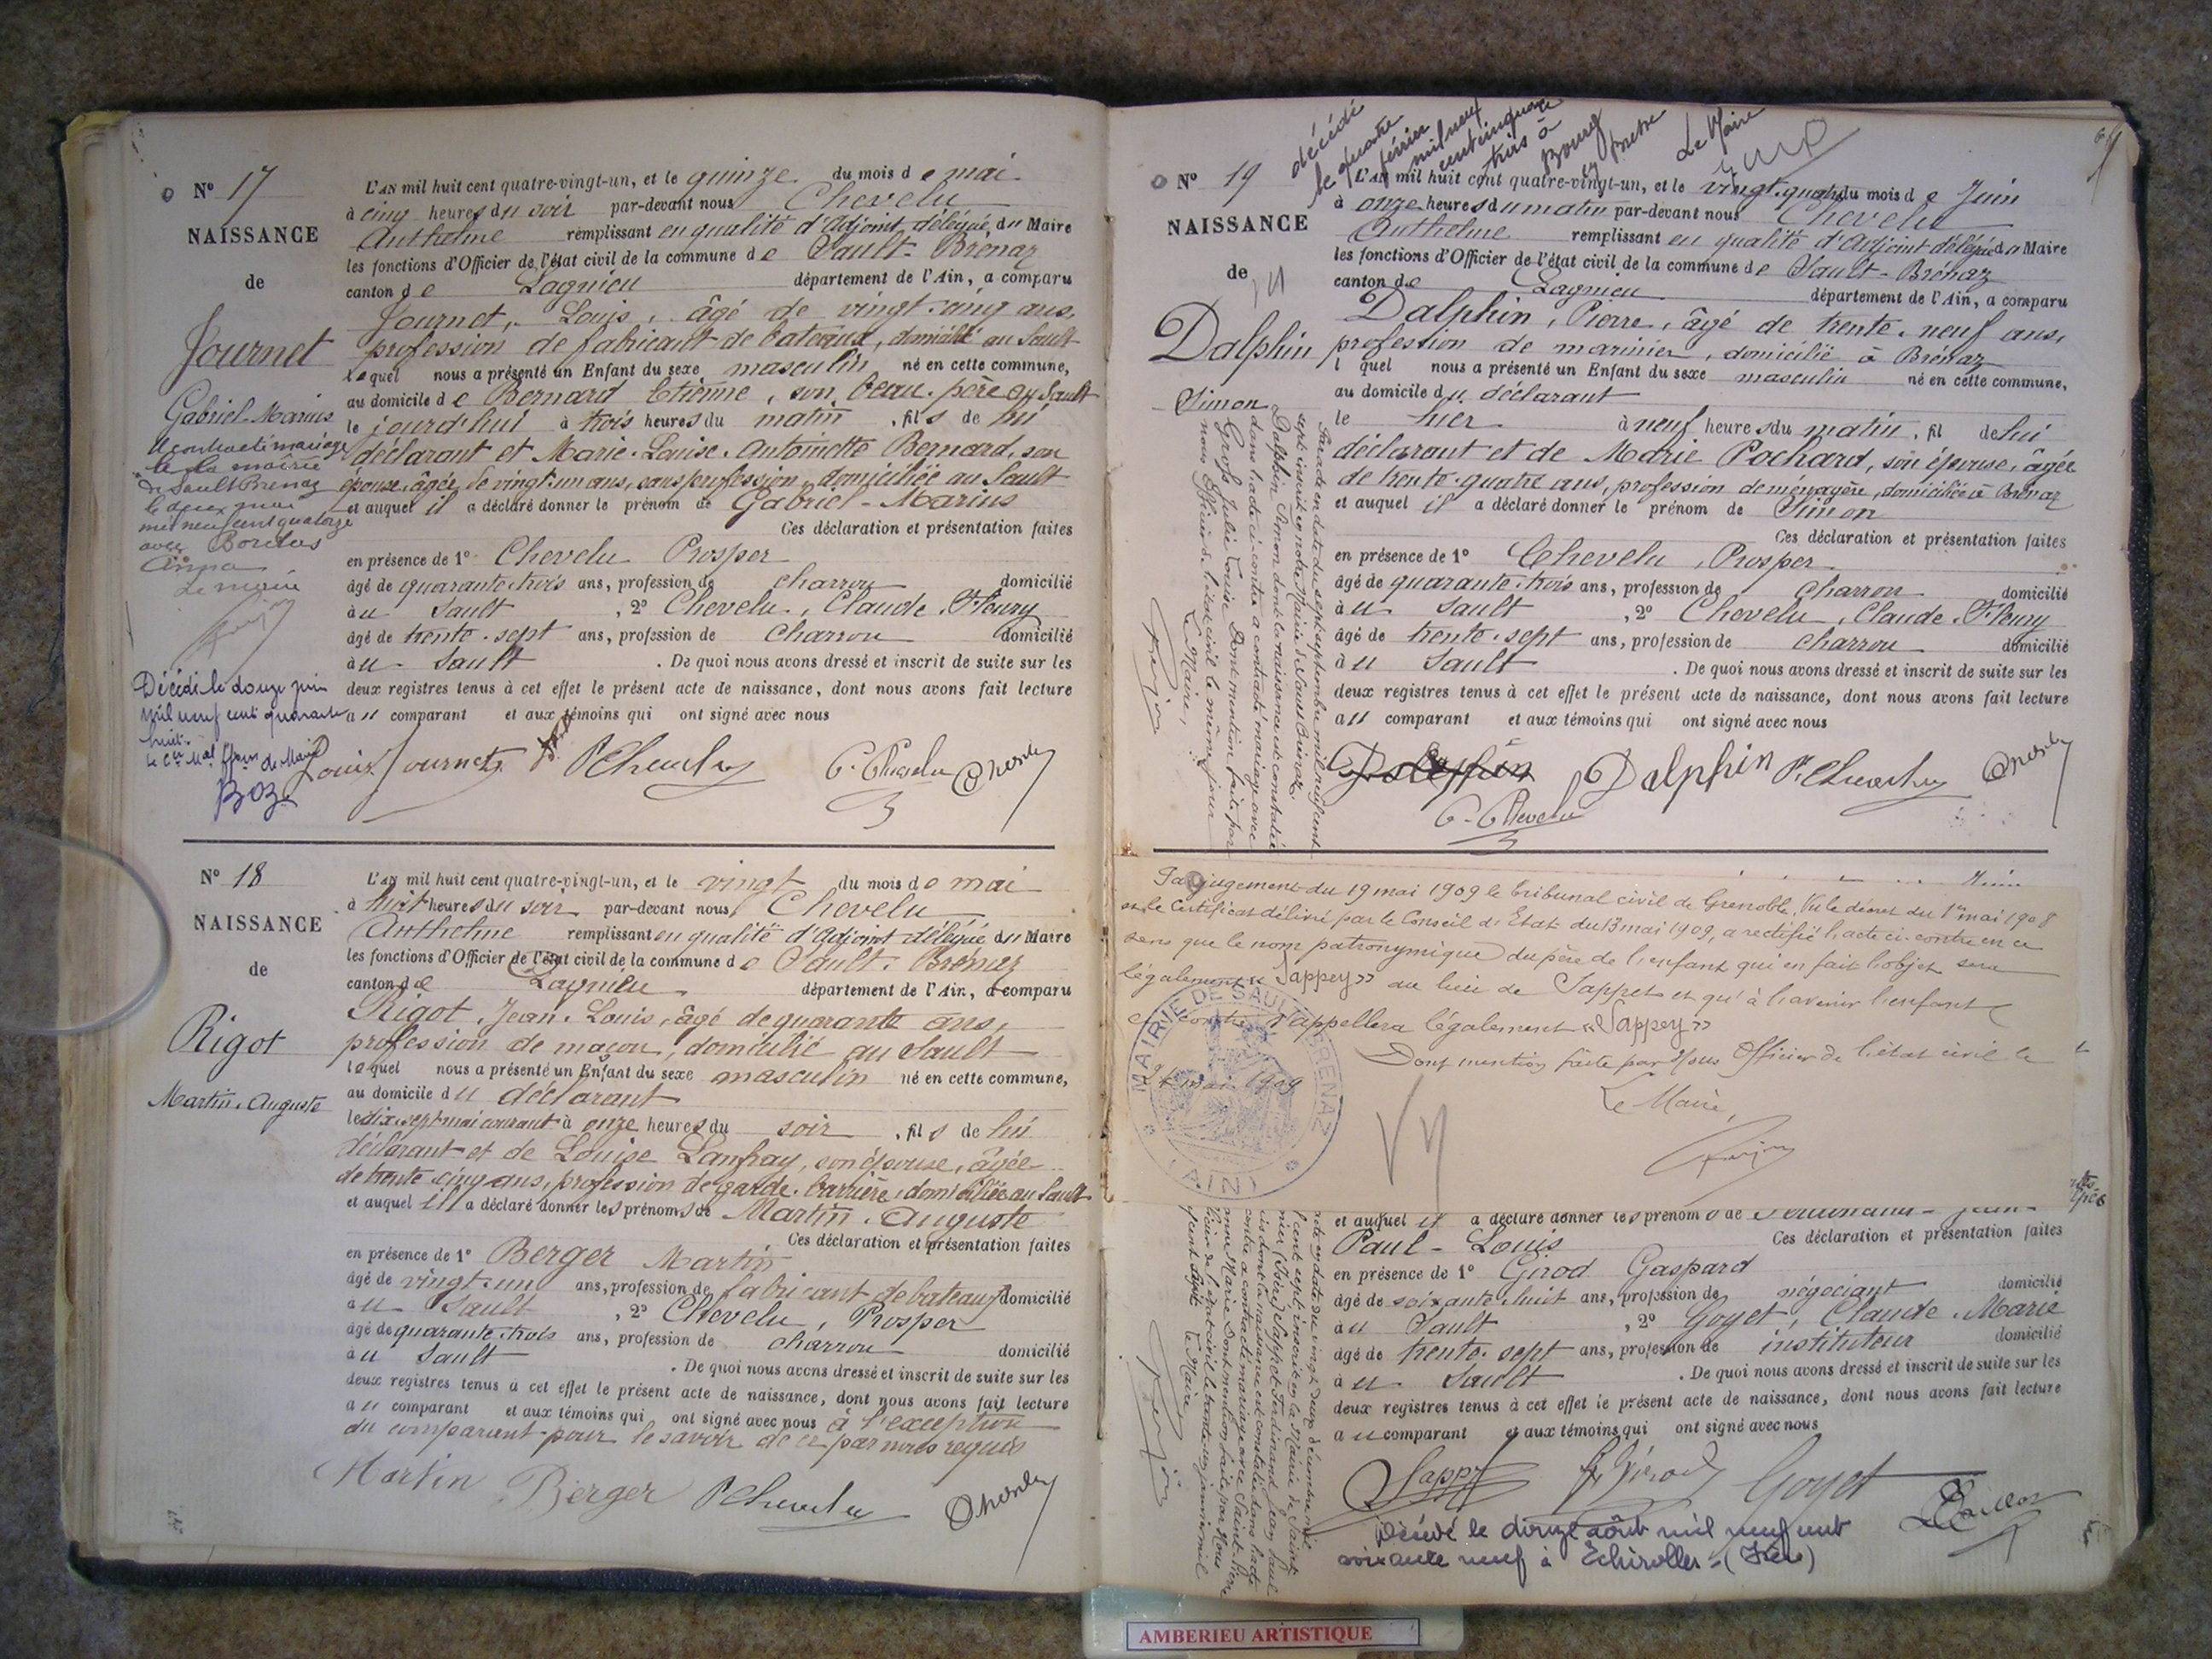 N° 17
NAISSANCE
de
Journet
Gabriel-Marius
A contracté mariage
à la mairie
de Sault Brenaz
le deux mai
mil neuf cent quatorze
avec Bordas
Anna
Le maire
Décédé le douze juin
mil neuf cent quarante
huit.
Boz
L'AN mil huit cent quatre-vingt-un, et le quinze du mois de mai
à cinq heures du soir par-devant nous Chevelu
Anthelme remplissant en qualité d'Adjoint délégué du Maire
les fonctions d'Officier de l'état civil de la commune de Sault-Brénaz
canton de Lagnieu département de l'Ain, a comparu
Journet, Louis, âgé de vingt-cinq ans,
profession de fabricant de bateaux, domicilié au Sault
lequel nous a présenté un Enfant du sexe masculin né en cette commune,
au domicile de Bernard Etienne, son beau-père au Sault
le jourd'hui à trois heures du matin, fils de lui
déclarant et Marie-Louise-Antoinette Bernard, son
épouse, âgée de vingt-un ans, sans profession, domiciliée au Sault
et auquel il a déclaré donner le prénom de Gabriel-Marius
Ces déclaration et présentation faites
en présence de 1° Chevelu Prosper
âgé de quarante-trois ans, profession de charron domicilié
au Sault, 2° Chevelu, Claude-Fleury
âgé de trente-sept ans, profession de charron domicilié
au Sault. De quoi nous avons dressé et inscrit de suite sur les
deux registres tenus à cet effet le présent acte de naissance, dont nous avons fait lecture
au comparant et aux témoins qui ont signé avec nous
Louis Journet P. Chevelu C. Chevelu Chevelu
N° 18
NAISSANCE
de
Rigot
Martin-Auguste
L'AN mil huit cent quatre-vingt-un, et le vingt du mois de mai
à huit heures du soir par-devant nous Chevelu
Anthelme remplissant en qualité d'Adjoint délégué du Maire
les fonctions d'Officier de l'état civil de la commune de Sault-Brénaz
canton de Lagnieu département de l'Ain, a comparu
Rigot, Jean-Louis, âgé de quarante ans,
profession de maçon, domicilié au Sault
lequel nous a présenté un Enfant du sexe masculin né en cette commune,
au domicile du déclarant
le dix-sept mai courant à onze heures du soir, fils de lui
déclarant et de Louise Lanfray, son épouse, âgée
de trente-cinq ans, profession de garde-barrière, domiciliée au Sault
et auquel il a déclaré donner les prénoms de Martin-Auguste
Ces déclaration et présentation faites
en présence de 1° Berger Martin
âgé de vingt-un ans, profession de fabricant de bateaux domicilié
au Sault, 2° Chevelu, Prosper
âgé de quarante-trois ans, profession de charron domicilié
au Sault. De quoi nous avons dressé et inscrit de suite sur les
deux registres tenus à cet effet le présent acte de naissance, dont nous avons fait lecture
au comparant et aux témoins qui ont signé avec nous à l'exception
du comparant pour le savoir de ce par nous requis
Martin Berger P. Chevelu Chevelu
décédé
le quatre
février
mil neuf
cent cinquante
trois à
Bourg
en Bresse
Le Maire
N° 19
NAISSANCE
de
Dalphin
Simon
L'AN mil huit cent quatre-vingt-un, et le vingt-quatre du mois de Juin
à onze heures du matin par-devant nous Chevelu
Anthelme remplissant en qualité d'Adjoint délégué du Maire
les fonctions d'Officier de l'état civil de la commune de Sault-Brénaz
canton de Lagnieu département de l'Ain, a comparu
Dalphin, Pierre, âgé de trente-neuf ans,
profession de marinier, domicilié à Brénaz
l quel nous a présenté un Enfant du sexe masculin né en cette commune,
au domicile du déclarant
le hier à neuf heures du matin, fil de lui
déclarant et de Marie Pochard, son épouse, âgée
de trente-quatre ans, profession de ménagère, domiciliée à Brénaz
et auquel il a déclaré donner le prénom de Simon
Ces déclaration et présentation faites
en présence de 1° Chevelu, Prosper
âgé de quarante-trois ans, profession de charron domicilié
au Sault, 2° Chevelu, Claude-Fleury
âgé de trente-sept ans, profession de charron domicilié
au Sault. De quoi nous avons dressé et inscrit de suite sur les
deux registres tenus à cet effet le présent acte de naissance, dont nous avons fait lecture
au comparant et aux témoins qui ont signé avec nous
Dalphin P. Chevelu Chevelu
C. Chevelu
Par acte en date du sept septembre mil neuf cent
sept inscrit en notre Mairie de Sault Brénaz,
Dalphin Simon dont la naissance est constatée
dans l'acte ci-contre a contracté mariage avec
Gros Julie Louise. Dont mention faite par
nous Officier de l'état civil le même jour
Le Maire,
Par jugement du 19 mai 1909 le tribunal civil de Grenoble, Vu le décret du 1er mai 1908
et le Certificat délivré par le Conseil d'Etat du 13 mai 1909, a rectifié l'acte ci-contre en ce
sens que le nom patronymique du père de l'enfant qui en fait l'objet sera
légalement « Sappey » au lieu de Sappet et qu'à l'avenir l'enfant
ci-contre s'appellera légalement « Sappey »
Dont mention faite par Nous Officier de l'état civil le
24 mai 1909
Le Maire,
MAIRIE DE SAULT-BRENAZ
(AIN)
et auquel il a déclaré donner les prénoms de Ferdinand-Jean-
Paul-Louis Ces déclaration et présentation faites
en présence de 1° Girod Gaspard
âgé de soixante-huit ans, profession de négociant domicilié
au Sault, 2° Goyet, Claude-Marie
âgé de trente-sept ans, profession de instituteur domicilié
au Sault. De quoi nous avons dressé et inscrit de suite sur les
deux registres tenus à cet effet le présent acte de naissance, dont nous avons fait lecture
au comparant et aux témoins qui ont signé avec nous
Sappey G. Girod Goyet
Décédé le douze août mil neuf cent
soixante neuf à Echirolles - (Isère)
AMBERIEU ARTISTIQUE